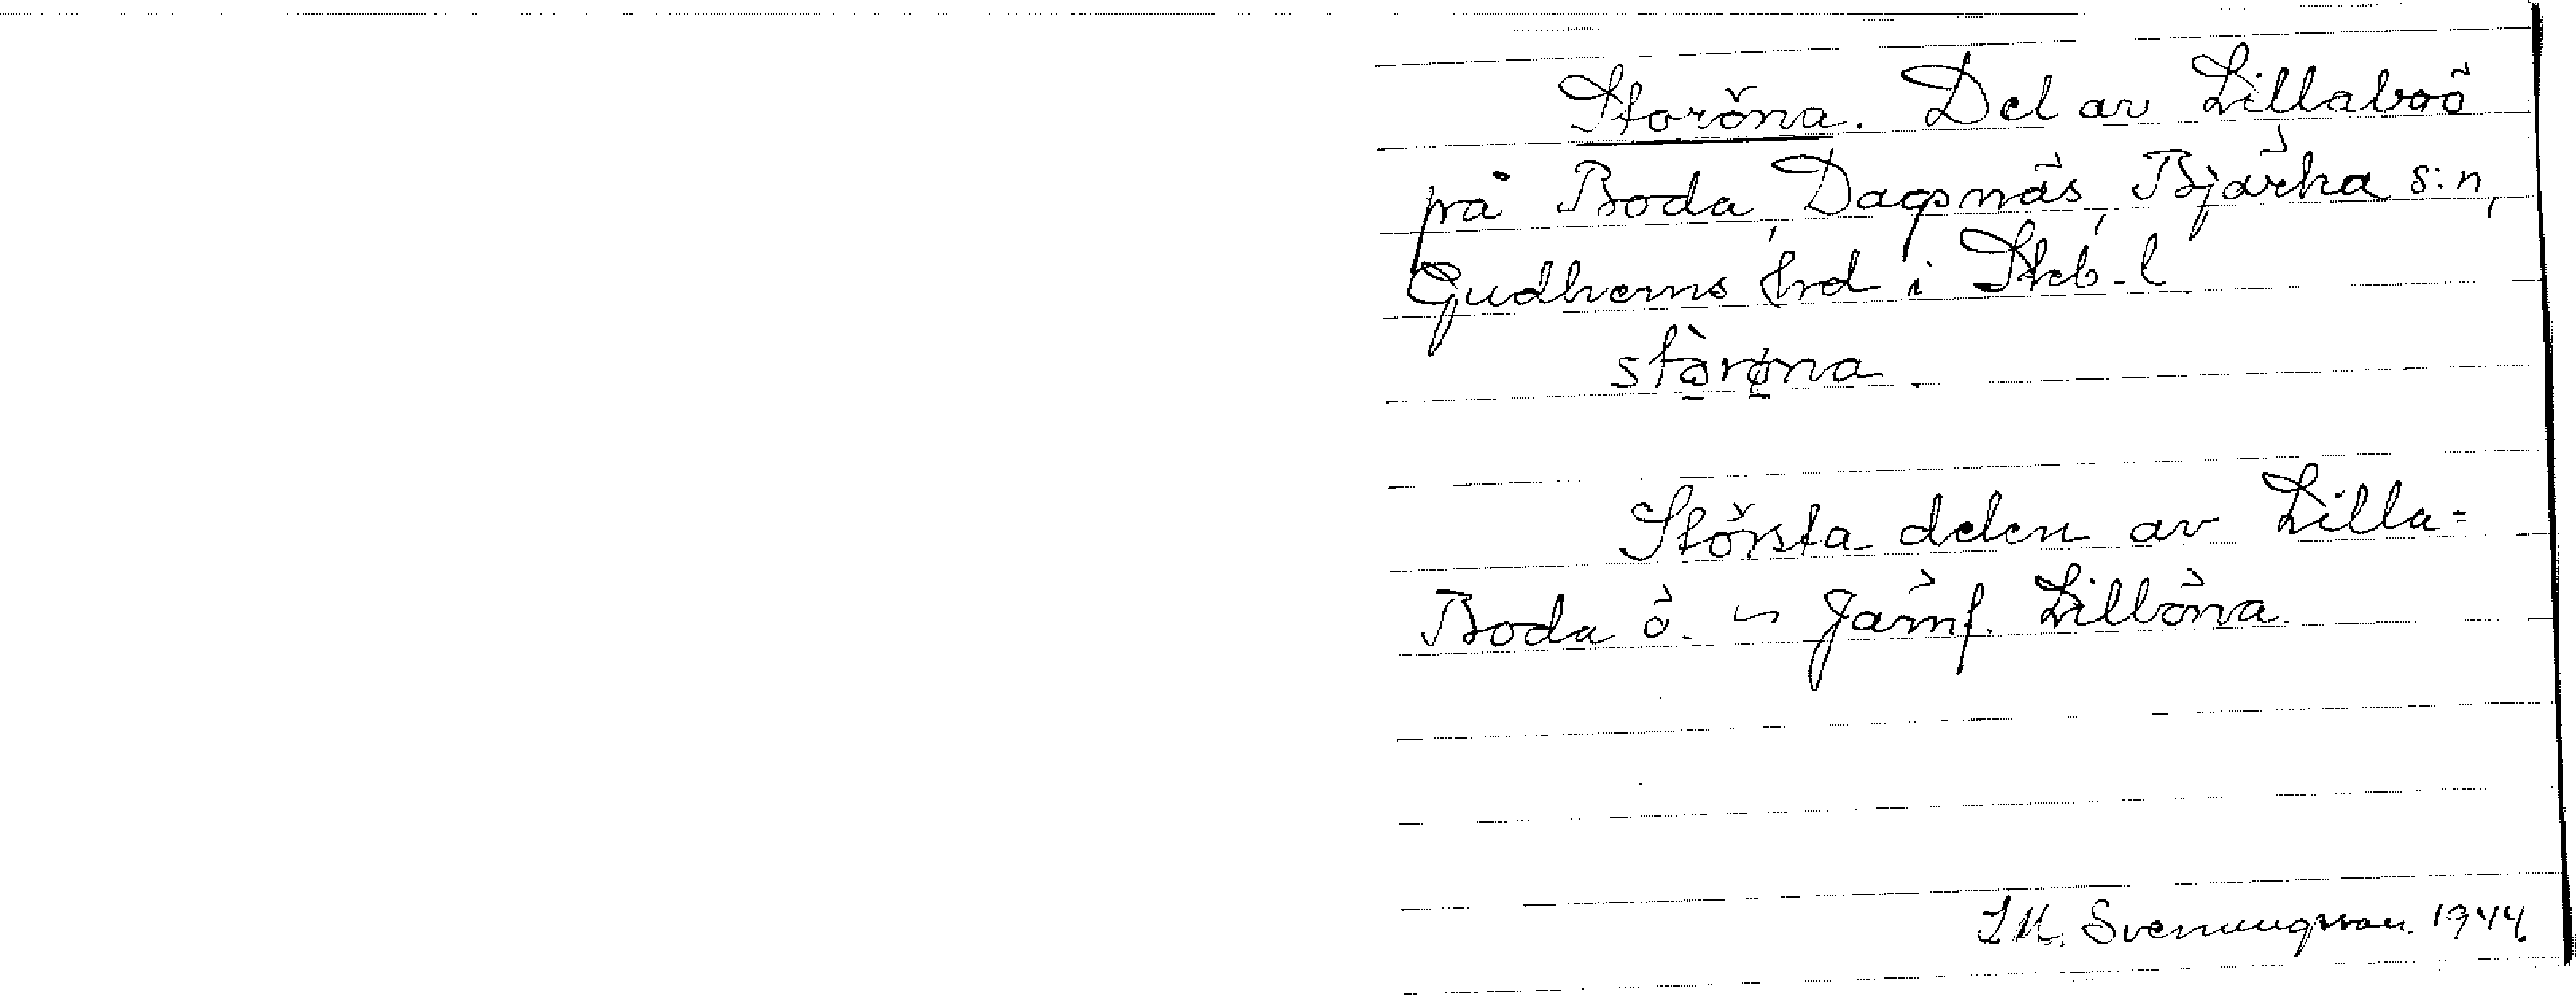 Storöna. Del av Lillaboö
på Boda, Dagsnäs, Bjärka s:n,
Gudhems hrd i Skb-l
stòrøna
Största delen av Lilla=
Boda ö. ~ Jämf. Lillöna.
Svenungsson 1944